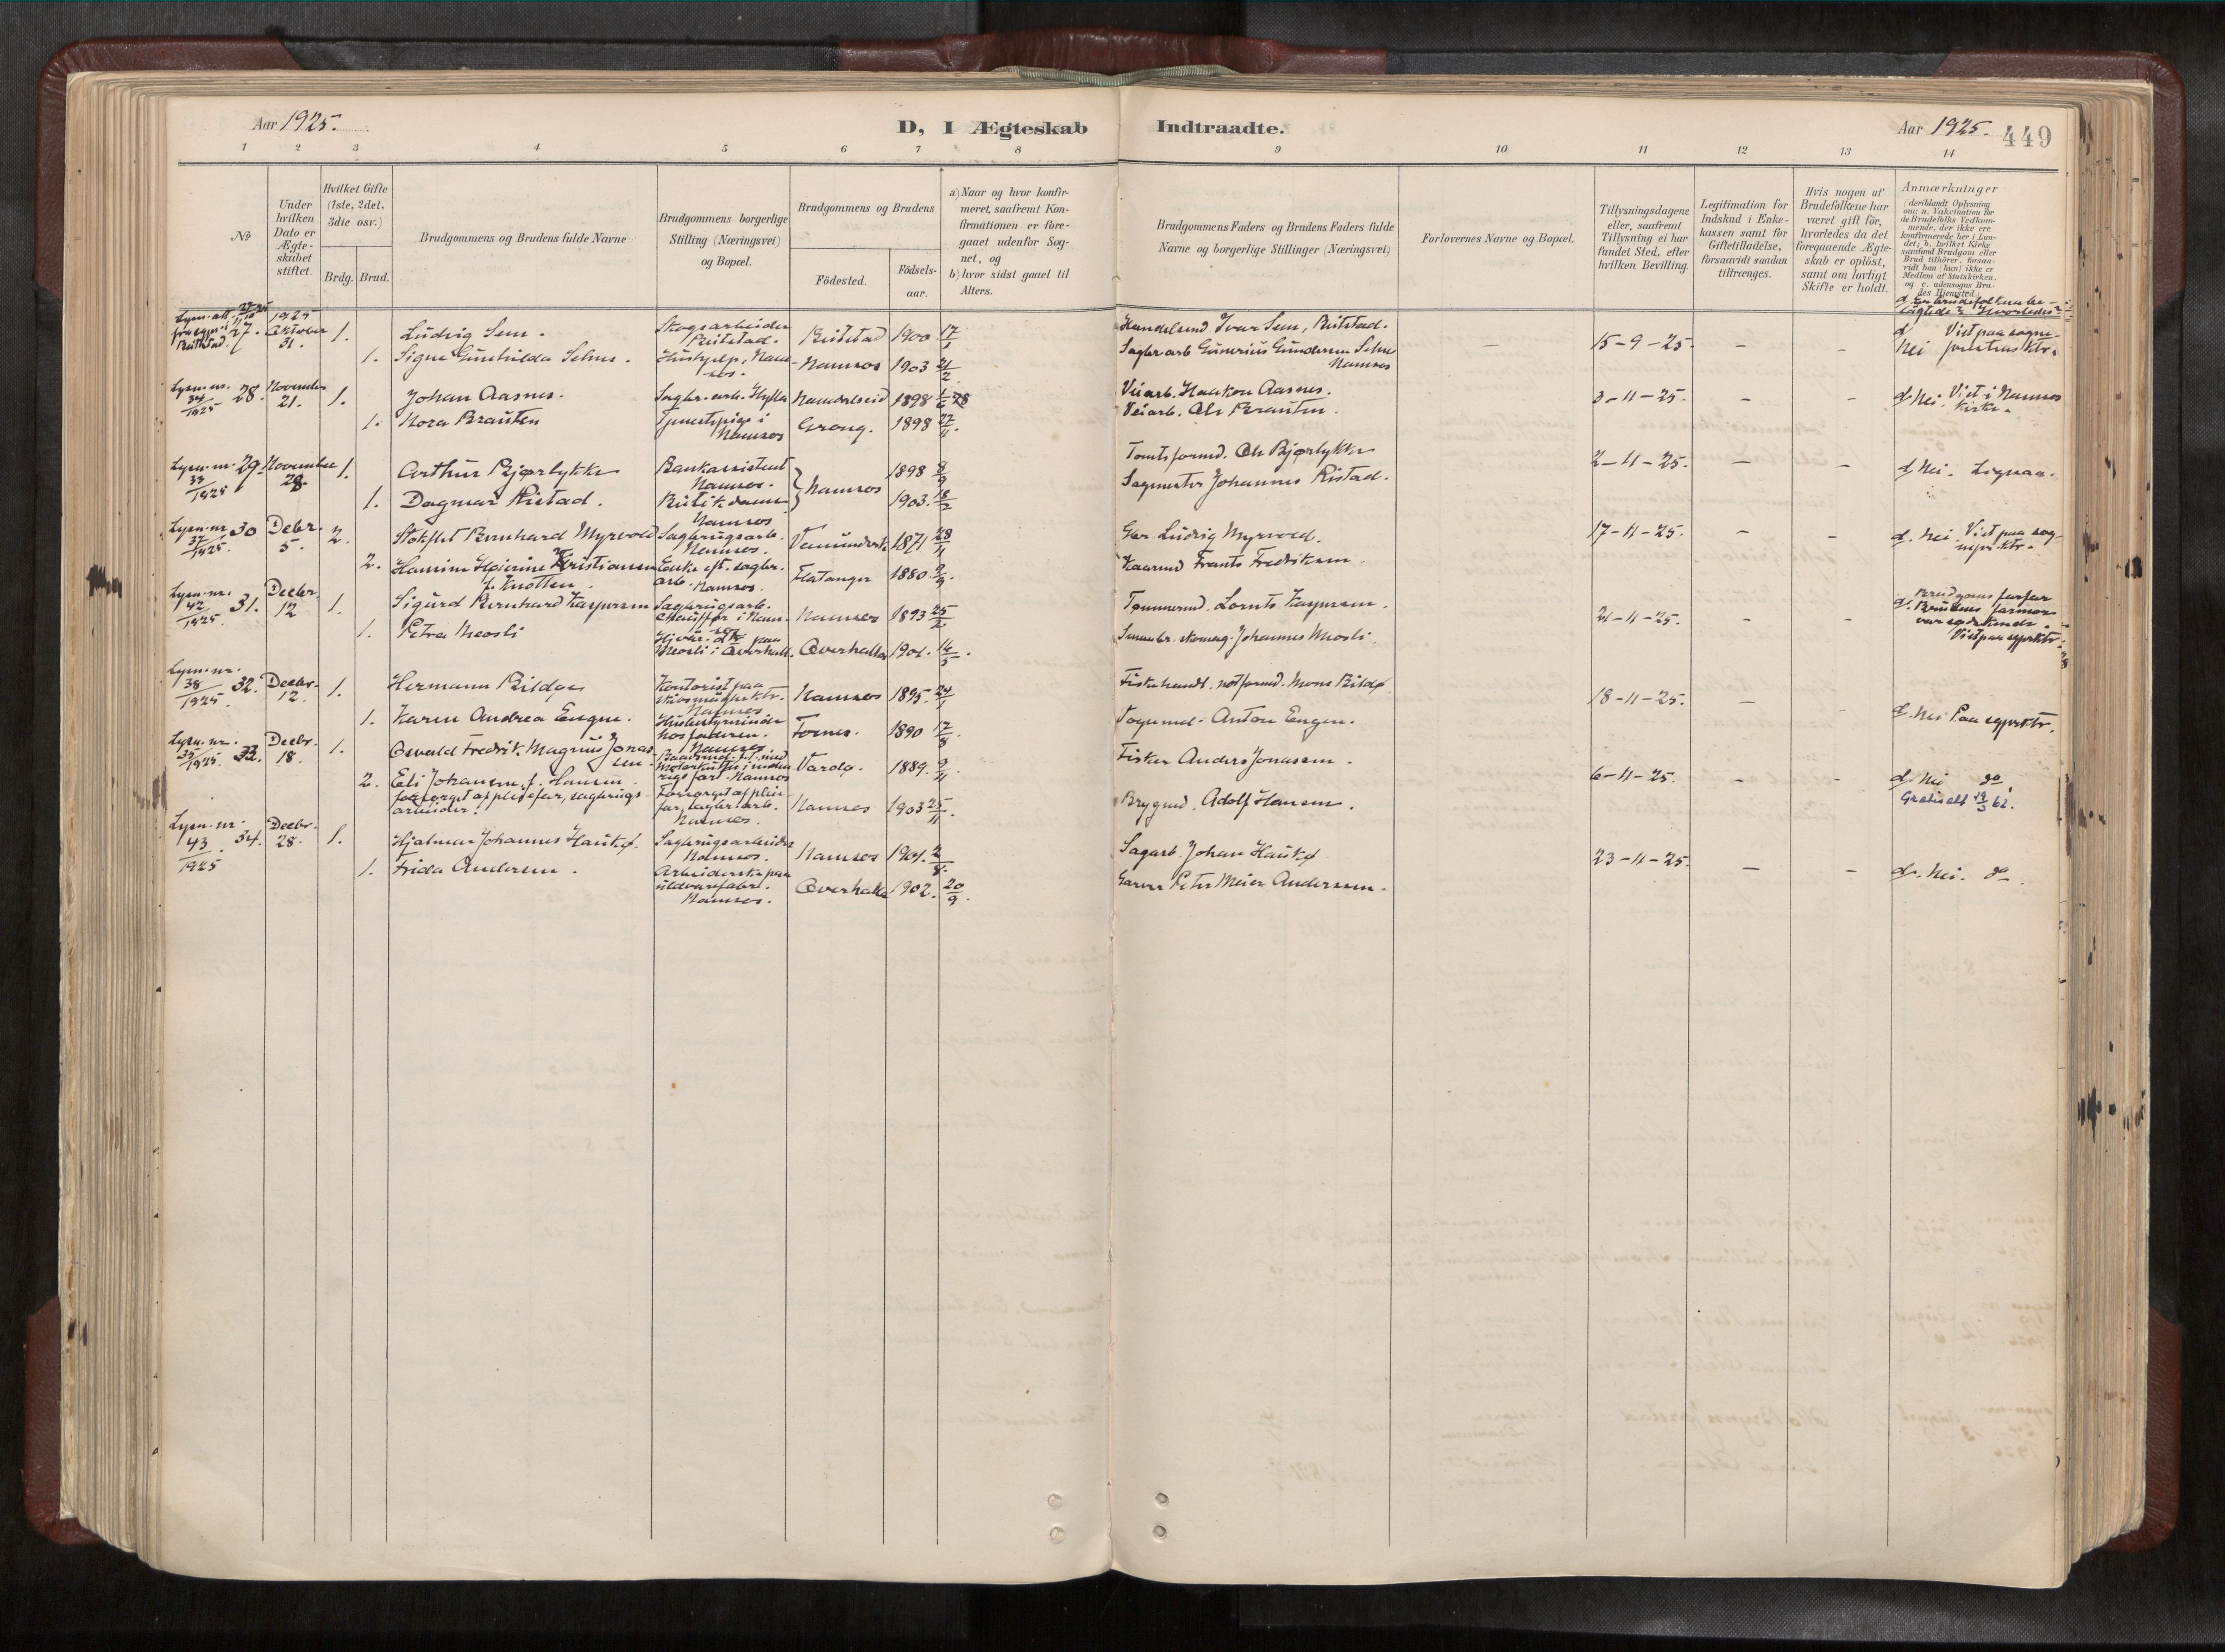 Aar 1925.
D, I Ægteskab Indtraadte.
Aar 1925. 449
1 2 3 4 5 6 7 8 9 10 11 12 13 14
№
Under hvilken Dato er Ægteskabet stiftet.
Hvilket Gifte (1ste, 2det, 3die osv.)
Brdg. Brud.
Brudgommens og Brudens fulde Navne
Brudgommens borgerlige Stilling (Næringsvei) og Bopæl.
Brudgommens og Brudens
Födested.
Födsels-aar.
a) Naar og hvor konfir-
meret, saafremt Kon-
firmationen er fore-
gaaet udenfor Sog-
net, og
b) hvor sidst gaaet til
Alters.
Brudgommens Faders og Brudens Faders fulde
Navne og borgerlige Stillinger (Næringsvei)
Forlovernes Navne og Bopæl.
Tillysningsdagene
eller, saafremt
Tillysning ei har
fundet Sted, efter
hvilken Bevilling.
Legitimation for
Indskud i Enke-
kassen samt for
Giftetilladelse,
forsaavidt saadan
tiltrænges.
Hvis nogen af
Brudefolkene har
været gift før,
hvorledes da det
foregaaende Ægte-
skab er oplöst,
samt om lovligt
Skifte er holdt.
Anmærkninger
(deriblandt Oplysning
om: a. Vakcination for
de Brudefolks Vedkom-
mende, der ikke ere
konfirmerede her i Lan-
det; b. hvilket Kirke
samfund Brudgom eller
Brud tilhörer, forsaa-
vidt han (hun) ikke er
Medlem af Statskirken,
og c. udensogns Bru-
des Hjemsted.)
d. Er brudefolkene be-
slægtede? Hvorledes?
27. 1925 Oktober 31. 1. Ludvig Sem. Skogsarbeider Beitstad. Beitstad 1900 17/1 Handelsmd Ivar Sem, Beitstad. — 15-9-25. — — d. Nei Viet paa sogne-
prestens ktr.
1. Signe Gunhilda Selnes. Hushjelp, Nam-
sos. Namsos 1903 21/2 Sagbr. arb. Gunerius Gundersen Selnes
Namsos
Lysn. nr. 34/1925 28. November 21. 1. Johan Aasnes. Sagbr. arb. Hylla Namdalseid 1898 Veiarb. Haakon Aasnes. 3-11-25. — — d. Nei. Viet i Namsos
kirke.
1. Nora Brauten Tjenestepige i
Namsos Grong. 1898 27/11. Veiarb. Ole Brauten.
Lysn. nr. 33/1925 29. November 28. 1. Arthur Bjørlykke Bankassistent
Namsos. Namsos 1898 8/9 Tomtsformd. Ole Bjørlykke 2-11-25. — — d. Nei.
1. Dagmar Ristad. Butikdame
Namsos 1903. 18/2 Sagmester Johannes Ristad.
Lysn. nr. 37/1925. 30 Debr. 5. 2. Stokflet Bernhard Myrvold Sagbrugsarb.
Namsos. Vemundvik 1871 28/11 Gbr. Ludvig Myrvold. 17-11-25. — — d. Nei. Viet paa sog-
nepr. ktr.
2. Hansine Heirine Kristiansen
f. Knotten. Enke eft. sagbr.
arb. Namsos. Flatanger 1880 Kaarmd Frants Fredriksen.
Lysn. nr. 42/1925. 31. Decbr. 12 1. Sigurd Bernhard Kaspersen Sagbrugsarb.
chauffør i Nam-
sos Namsos 1893 25/2 Tømmermd. Lornts Kaspersen. 21-11-25. — — d. Brudgoms farfar
Brudens farmor
var sødskende.
Viet paa sgprktr.
1. Petra Meosli Overhalla 1901. 16/5. Johannes Meosli
Lysn. nr. 38/1925 32. Decbr. 12. 1. Hermann Bildøe Kontorist paa
Namsos Namsos 1895 24/1 Fiskehandl. notformd. Mons Bildø 18-11-25. — — d. Nei Paa sgprktr.
1. Karen Andrea Engen. Husbestyrerinde
hos faderen.
Namsos Fosnes. 1890 17/8 Vognmd. Anton Engen.
Lysn. nr. 35/1925. 33. Decbr. 18. 1. Osvald Fredrik Magnus Jonas-
sen. Namsos Vardø. 1889. Fisker Anders Jonassen. 6-11-25. — — d. Nei do.
Gratisatt 19/3 62.
2. Eli Johansen f. Hansen.
forsørget af pleiefar, sagbrugs-
arbeider. Forsørget af pleie-
far, sagbr. arb.
Namsos. Namsos 1903 25/11. Bryggmd. Adolf Hansen.
Lysn. nr. 43/1925 34. Decbr. 28. 1. Hjalmar Johannes Haukø. Sagbrugsarbeider
Namsos. Namsos 1901. 2/8. Sagarb. Johan Haukø 23-11-25. — — d. Nei. do.
1. Frida Andersen. Arbeiderske paa
uldvarefabr.
Namsos. Overhalla 1902. 20/9. Garver Peter Meier Andersen.